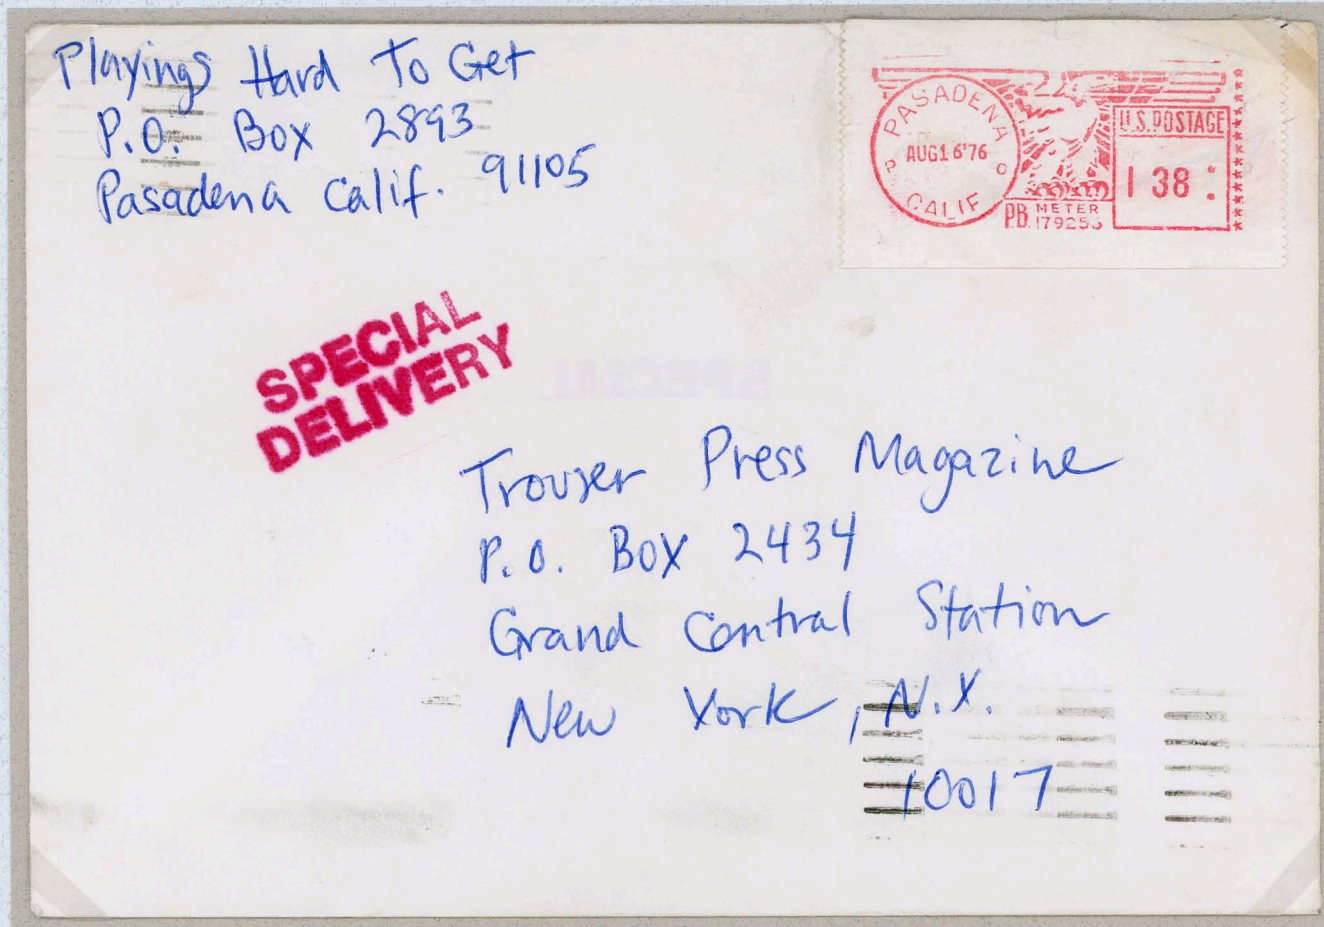 Playings Hard To Get
P.O. Box 2893
Pasadena Calif. 91105
PASADENA
AUG16'76
P O
CALIF
U.S. POSTAGE
1 38
P.B. METER
SPECIAL
DELIVERY
SPECIAL
Trouser Press Magazine
P.O. Box 2434
Grand Central Station
New York, N.Y.
10017